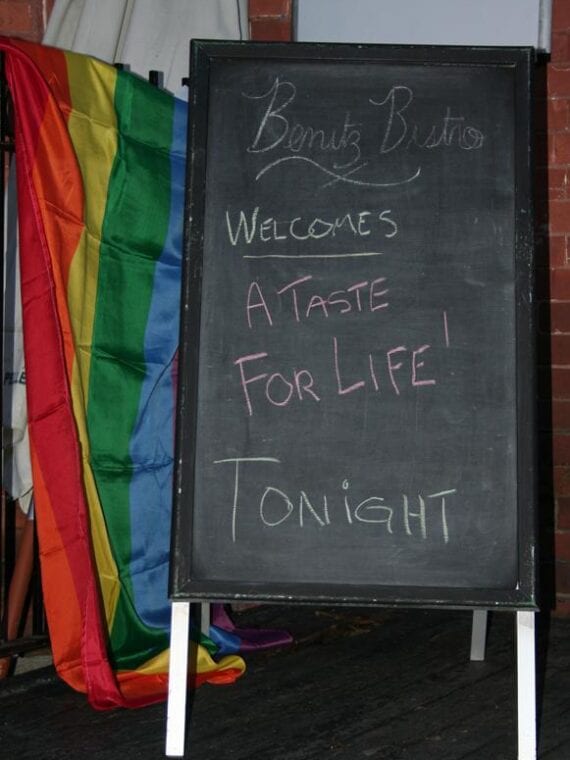 Benitz Bistro
WELCOMES
A TASTE
FOR LIFE'
TONiGHT